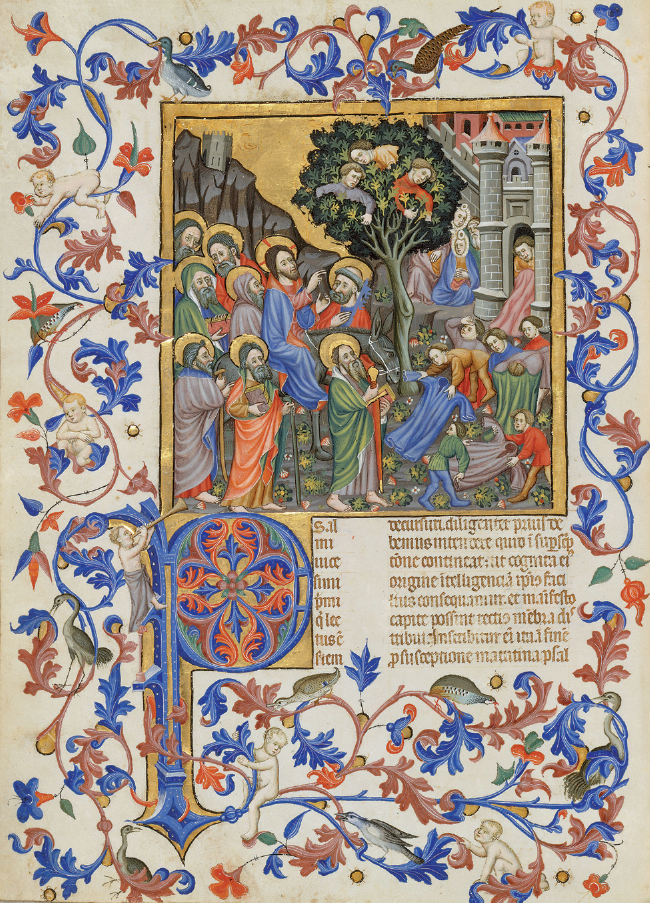 PSal
mi
uice
simi
pmi
q lec
tus ē
decursuri. diligenter prius de
bemus intendere quid i supscp
cōne contineat: ut cognita ei
origine ītelligenciā ipius facil
lius consequamur. et manifesto
capite possint rectis mēbra dis
tribui. Inscribitur eī ita ī finē
p susceptione matutina psal